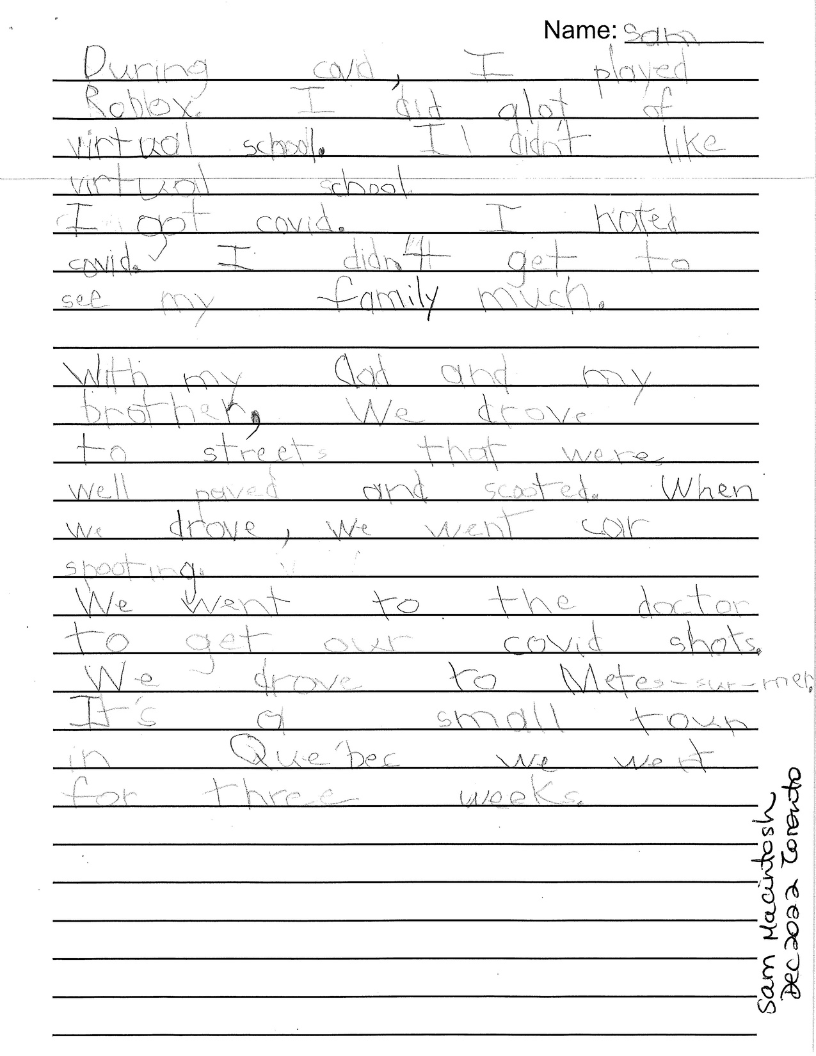 Name: Sam
During covid, I played
Roblox. I did alot of
virtual school. I didn't like
virtual school
I got covid. I hated
covid. I didn't get to
see my family much.
With my Dad and my
brother, We drove
to streets that were
well paved and scooted. When
we drove, we went car
spooting.
We went to the doctor
to get our covid shots.
We drove to Metes-sur-mer.
It's a small toun
in Québec we went
for three weeks.
Sam Macintosh
Dec 2022 Toronto